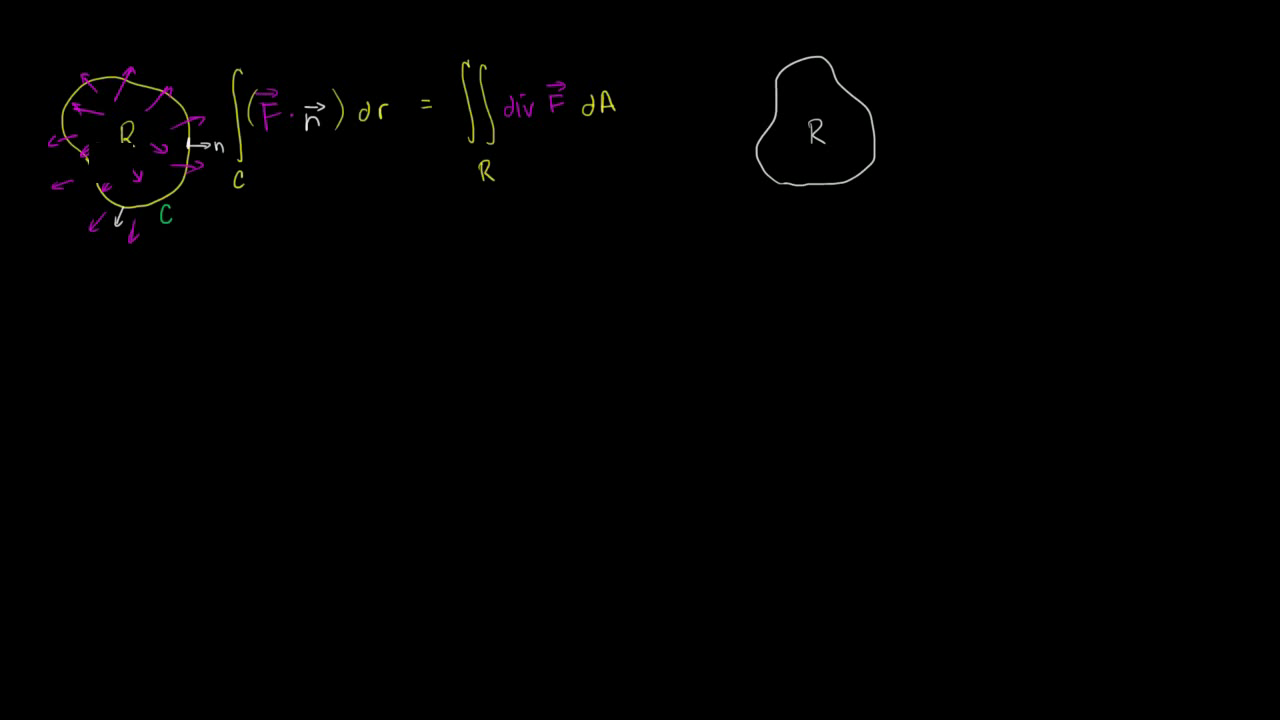 R
n
C
∫_C (F⃗ · n⃗) dr = ∬_R div F⃗ dA
R